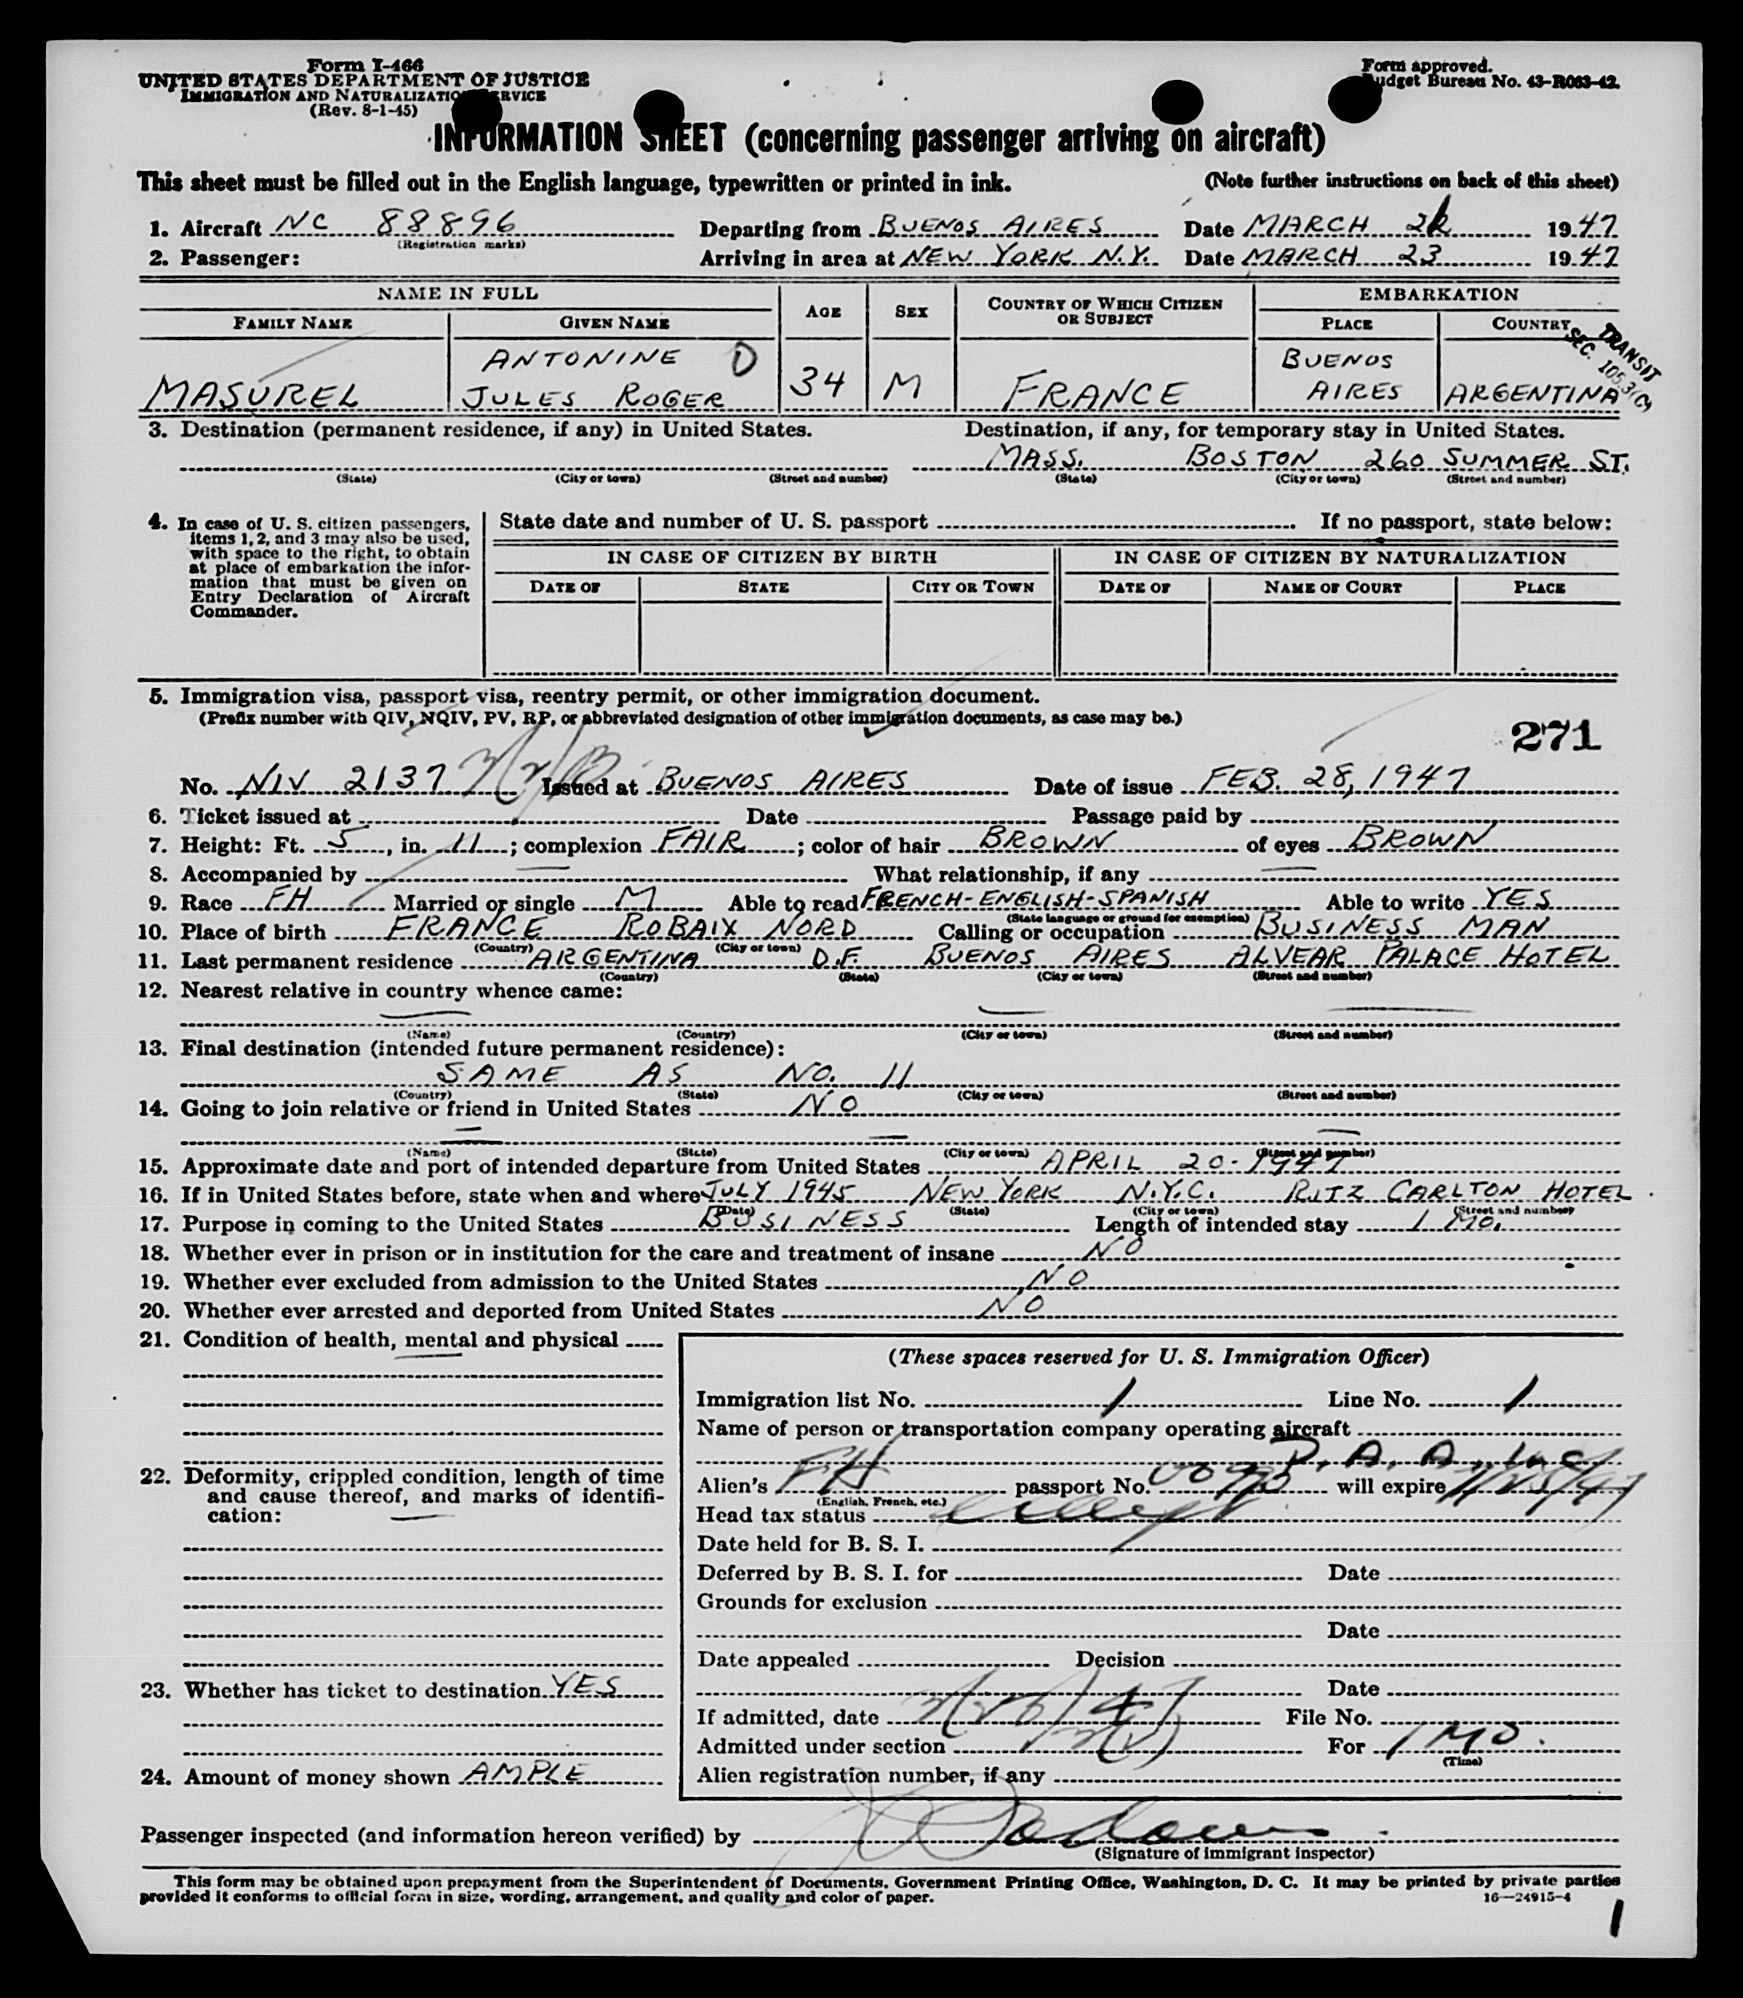 Form I-466
UNITED STATES DEPARTMENT OF JUSTICE
IMMIGRATION AND NATURALIZATION SERVICE
(Rev. 8-1-45)
Form approved.
Budget Bureau No. 43-R063-42.
INFORMATION SHEET (concerning passenger arriving on aircraft)
This sheet must be filled out in the English language, typewritten or printed in ink. (Note further instructions on back of this sheet)
1. Aircraft NC 88896 Departing from BUENOS AIRES Date MARCH 1947
(Registration marks)
2. Passenger: Arriving in area at NEW YORK N.Y. Date MARCH 23 1947
NAME IN FULL AGE SEX COUNTRY OF WHICH CITIZEN OR SUBJECT EMBARKATION
FAMILY NAME GIVEN NAME PLACE COUNTRY
TRANSIT
SEC.
ANTONINE BUENOS
MASUREL JULES ROGER 34 M FRANCE AIRES ARGENTINA
3. Destination (permanent residence, if any) in United States. Destination, if any, for temporary stay in United States.
MASS. BOSTON 260 SUMMER ST.
(State) (City or town) (Street and number) (State) (City or town) (Street and number)
4. In case of U. S. citizen passengers, items 1, 2, and 3 may also be used, with space to the right, to obtain at place of embarkation the information that must be given on Entry Declaration of Aircraft Commander.
State date and number of U. S. passport If no passport, state below:
IN CASE OF CITIZEN BY BIRTH IN CASE OF CITIZEN BY NATURALIZATION
DATE OF STATE CITY OR TOWN DATE OF NAME OF COURT PLACE
5. Immigration visa, passport visa, reentry permit, or other immigration document.
(Prefix number with QIV, NQIV, PV, RP, or abbreviated designation of other immigration documents, as case may be.)
271
No. NIV 2137 Issued at BUENOS AIRES Date of issue FEB. 28, 1947
6. Ticket issued at Date Passage paid by
7. Height: Ft. 5, in. 11; complexion FAIR; color of hair BROWN of eyes BROWN
8. Accompanied by — What relationship, if any —
9. Race FH Married or single M Able to read FRENCH-ENGLISH-SPANISH Able to write YES
(State language or ground for exemption)
10. Place of birth FRANCE ROBAIX NORD Calling or occupation BUSINESS MAN
(Country) (City or town)
11. Last permanent residence ARGENTINA D.F. BUENOS AIRES ALVEAR PALACE HOTEL
(Country) (State) (City or town) (Street and number)
12. Nearest relative in country whence came:
— — —
(Name) (Country) (City or town) (Street and number)
13. Final destination (intended future permanent residence):
SAME AS NO. 11
(Country) (State) (City or town) (Street and number)
14. Going to join relative or friend in United States NO
— — —
(Name) (State) (City or town) (Street and number)
15. Approximate date and port of intended departure from United States APRIL 20-1947
16. If in United States before, state when and where JULY 1945 NEW YORK N.Y.C. RITZ CARLTON HOTEL
(Date) (State) (City or town) (Street and number)
17. Purpose in coming to the United States BUSINESS Length of intended stay 1 MO.
18. Whether ever in prison or in institution for the care and treatment of insane NO
19. Whether ever excluded from admission to the United States NO
20. Whether ever arrested and deported from United States NO
21. Condition of health, mental and physical
—
22. Deformity, crippled condition, length of time and cause thereof, and marks of identification:
—
23. Whether has ticket to destination YES
24. Amount of money shown AMPLE
(These spaces reserved for U. S. Immigration Officer)
Immigration list No. 1 Line No. 1
Name of person or transportation company operating aircraft
P. A. A. Inc
Alien's FH passport No. will expire
(English, French, etc.)
Head tax status
Date held for B. S. I.
Deferred by B. S. I. for Date
Grounds for exclusion
Date
Date appealed Decision
Date
If admitted, date File No.
Admitted under section For 1 MO.
(Time)
Alien registration number, if any
Passenger inspected (and information hereon verified) by
(Signature of immigrant inspector)
This form may be obtained upon prepayment from the Superintendent of Documents, Government Printing Office, Washington, D. C. It may be printed by private parties
provided it conforms to official form in size, wording, arrangement, and quality and color of paper. 16—24915-4
1